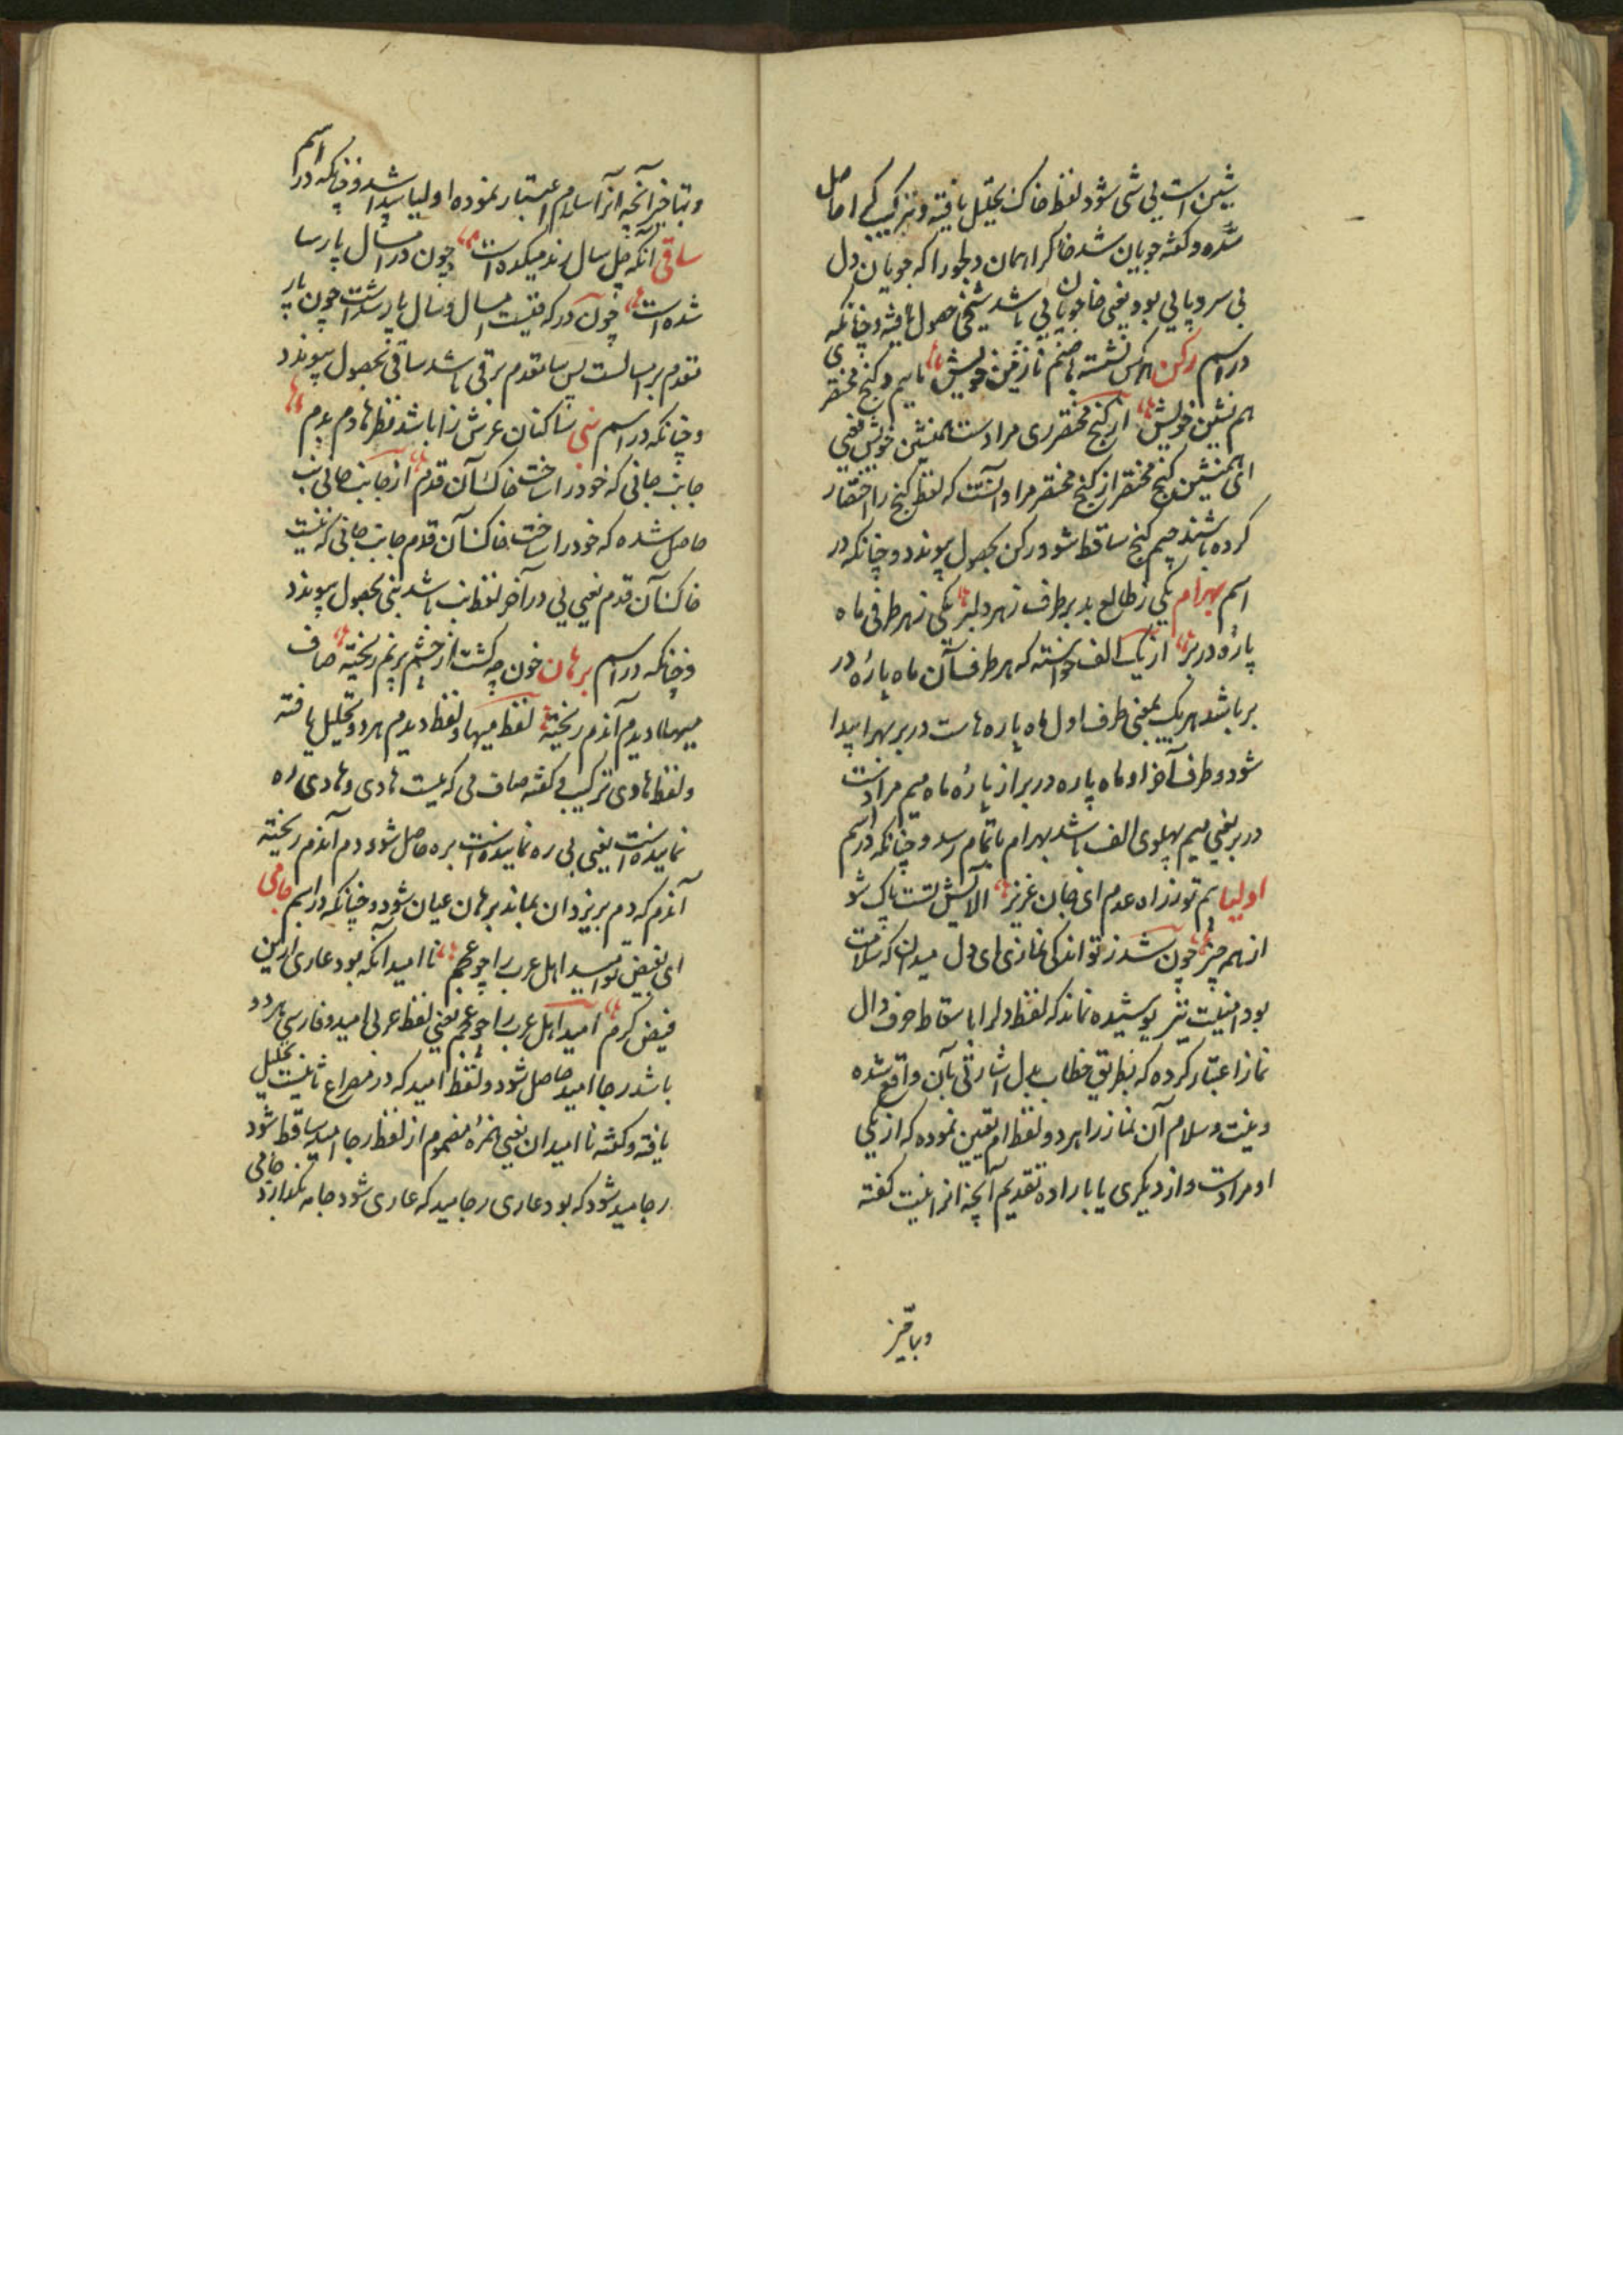 شین است بی شی شود لفظ خاک تحلیل یافته و ترکیب کی را حاصل
شده و گفته جویان شد خاک را همان دلجو را که جویان دل
بی سر و پایی بود یعنی خا جویان یی باشد شیخی حصول یافته و چنانکه
در اسم رکن هر کس نشسته با صنم نازنین خویش ماییم و کنج مختصری
هم نشین خویش از کنج مختصر ری مرادست همنشین خویش یعنی
ای همنشین کنج مختصر از کنج مختصر مراد آنست که لفظ کنج را اختصار
کرده باشند جیم کنج ساقط شود رکن بحصول پیوندد و چنانکه در
اسم بهرام یکی ز طالع بد بر طرف ز بهر دلبر یکی ز بهر طرفی ماه
پاره در بر از یک الف خواسته که هر طرف آن ماه پاره در
بر باشد بهر یک بمعنی طرف اول ماه پاره هاست در بر بهرا پیدا
شود و طرف آخر او ماه پاره در بر از پاره ماه میم مرادست
در بر یعنی میم پهلوی الف باشد بهرام باتمام رسد و چنانکه در اسم
اولیا هم توز راه عدم ای جان عزیز الایش تست پاک شو
از همه چیز چون شد ز تو اندکی نمازی ای دل میدان که سلامت
بود نیت نیز پوشیده نماند که لفظ دلرا باسقاط حرف دال
نماز اعتبار کرده که بطریق خطاب بدل اشارتی بآن واقع شده
و نیت و سلام آن نماز را هر دو لفظ ام تعین نموده که از یکی
او مرادست و از دیگری یا باراده تقدیم آنچه انرا نیت گفته
وبتاخیر
وبتاخیر آنچه انرا سلام اعتبار نموده اولیا پیدا شد و چنانکه در اسم
ساقی آنکه چل سال رند میکده است چون در امسال پارسا
شده است چون در که نیست امسال و سال پار شدست چون پار
تقدم بر امسالست پس سا تقدم بر قی باشد ساقی بحصول پیوندد
و چنانکه در اسم نبی ساکنان عرش را باشد نظر هادم بدم
جانب جانی که خود را ساخت خاک آن قدم از جانب جانی نب
حاصل شده که خود را ساخت خاک آن قدم جانب جانی که نیست
خاک آن قدم یعنی یی در آخر لفظ نب باشد نبی بحصول پیوندد
و چنانکه در اسم برهان خون چه گشت از چشم پر نم ریخته صاف
میها دیدم آندم ریخته لفظ میها و لفظ دیدم هر دو تحلیل یافته
و لفظ هادی ترکیب و گفته صاف می که یست هادی و هادی ره
نماینده است یعنی بی ره نماینده است بره حاصل شود دم آندم ریخته
آندم که دم بریزد ان بماند برهان عیان شود و چنانکه در اسم جامی
ای بفیض تو امید اهل عرب را چو عجم نا امید آنکه بود عاری ازین
فیض کرم امید اهل عرب را چو عجم یعنی لفظ عربی امید و فارسی هر دو
باشد رجا امید حاصل شود و لفظ امید که در مصراع ثانیست تحلیل
یافته و گفته نا امیدان یعنی همزه مضموم از لفظ رجا امید ساقط شود
رجا مید شود که بود عاری رجا مید که عاری شود جامه نگدارد جامی